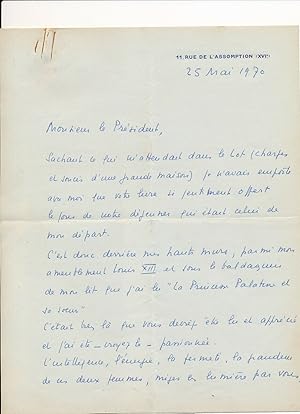 11, RUE DE L'ASSOMPTION (XVIᵉ)
25 Mai 1970
Monsieur le Président,
Sachant ce qui m'attendait dans le Lot (charges
et soucis d'une grande maison) je n'avais emporté
avec moi que votre livre si gentiment offert
le jour de notre déjeuner qui était celui de
mon départ.
C'est donc derrière mes hauts murs, parmi mon
ameublement Louis XIII et sous le baldaquin
de mon lit que j'ai lu "La Princesse Palatine et
sa sœur"
C'était bien là que vous deviez être lu et apprécié
et j'ai été - croyez-le - passionnée.
L'intelligence, l'énergie, la fermeté, la grandeur
de ces deux femmes, mises en lumière par vous